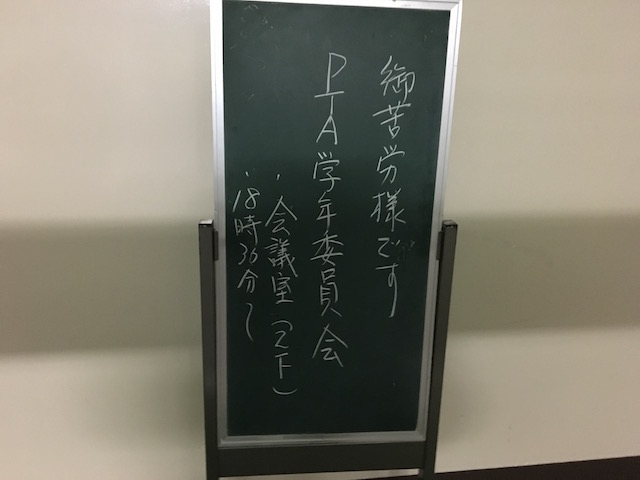 御苦労様です
PTA学年委員会
・会議室(2F)
・18時30分〜